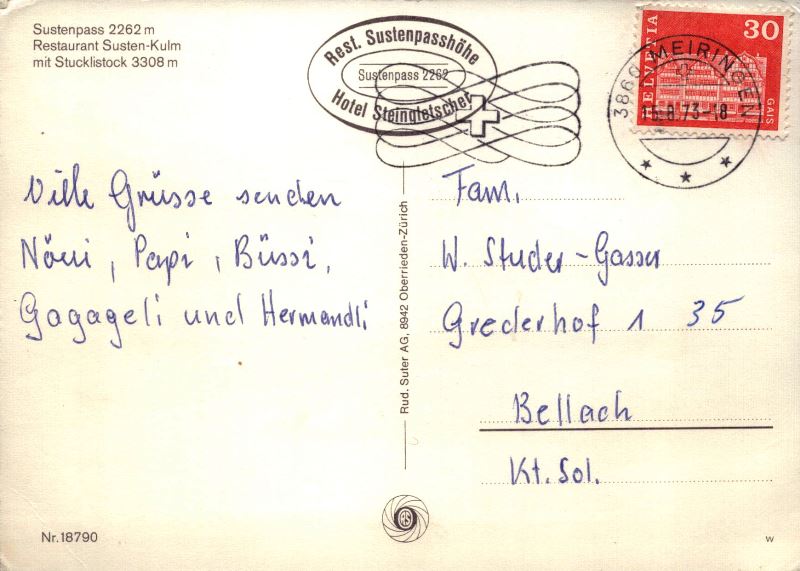 Sustenpass 2262 m
Restaurant Susten-Kulm
mit Stucklistock 3308 m
Rest. Sustenpasshöhe
Sustenpass 2262
Hotel Steingletscher
HELVETIA
30
GAIS
3860 MEIRINGEN
.8.73-18
Ville Grüsse senden
Nöui, Papi, Büssi,
Gagageli und Hermandli
Rud. Suter AG, 8942 Oberrieden-Zürich
Fam.
W. Studer-Gasser
Grederhof 1 35
Bellach
Kt. Sol.
Nr. 18790
RS
w